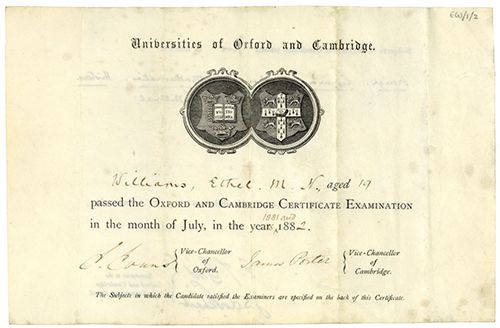 EW/1/2
Universities of Oxford and Cambridge.
Williams, Ethel. M. N., aged 19
passed the OXFORD AND CAMBRIDGE CERTIFICATE EXAMINATION
in the month of July, in the year 1881 and 1882.
E. Evans { Vice-Chancellor of Oxford. James Porter { Vice-Chancellor of Cambridge.
The Subjects in which the Candidate satisfied the Examiners are specified on the back of this Certificate.